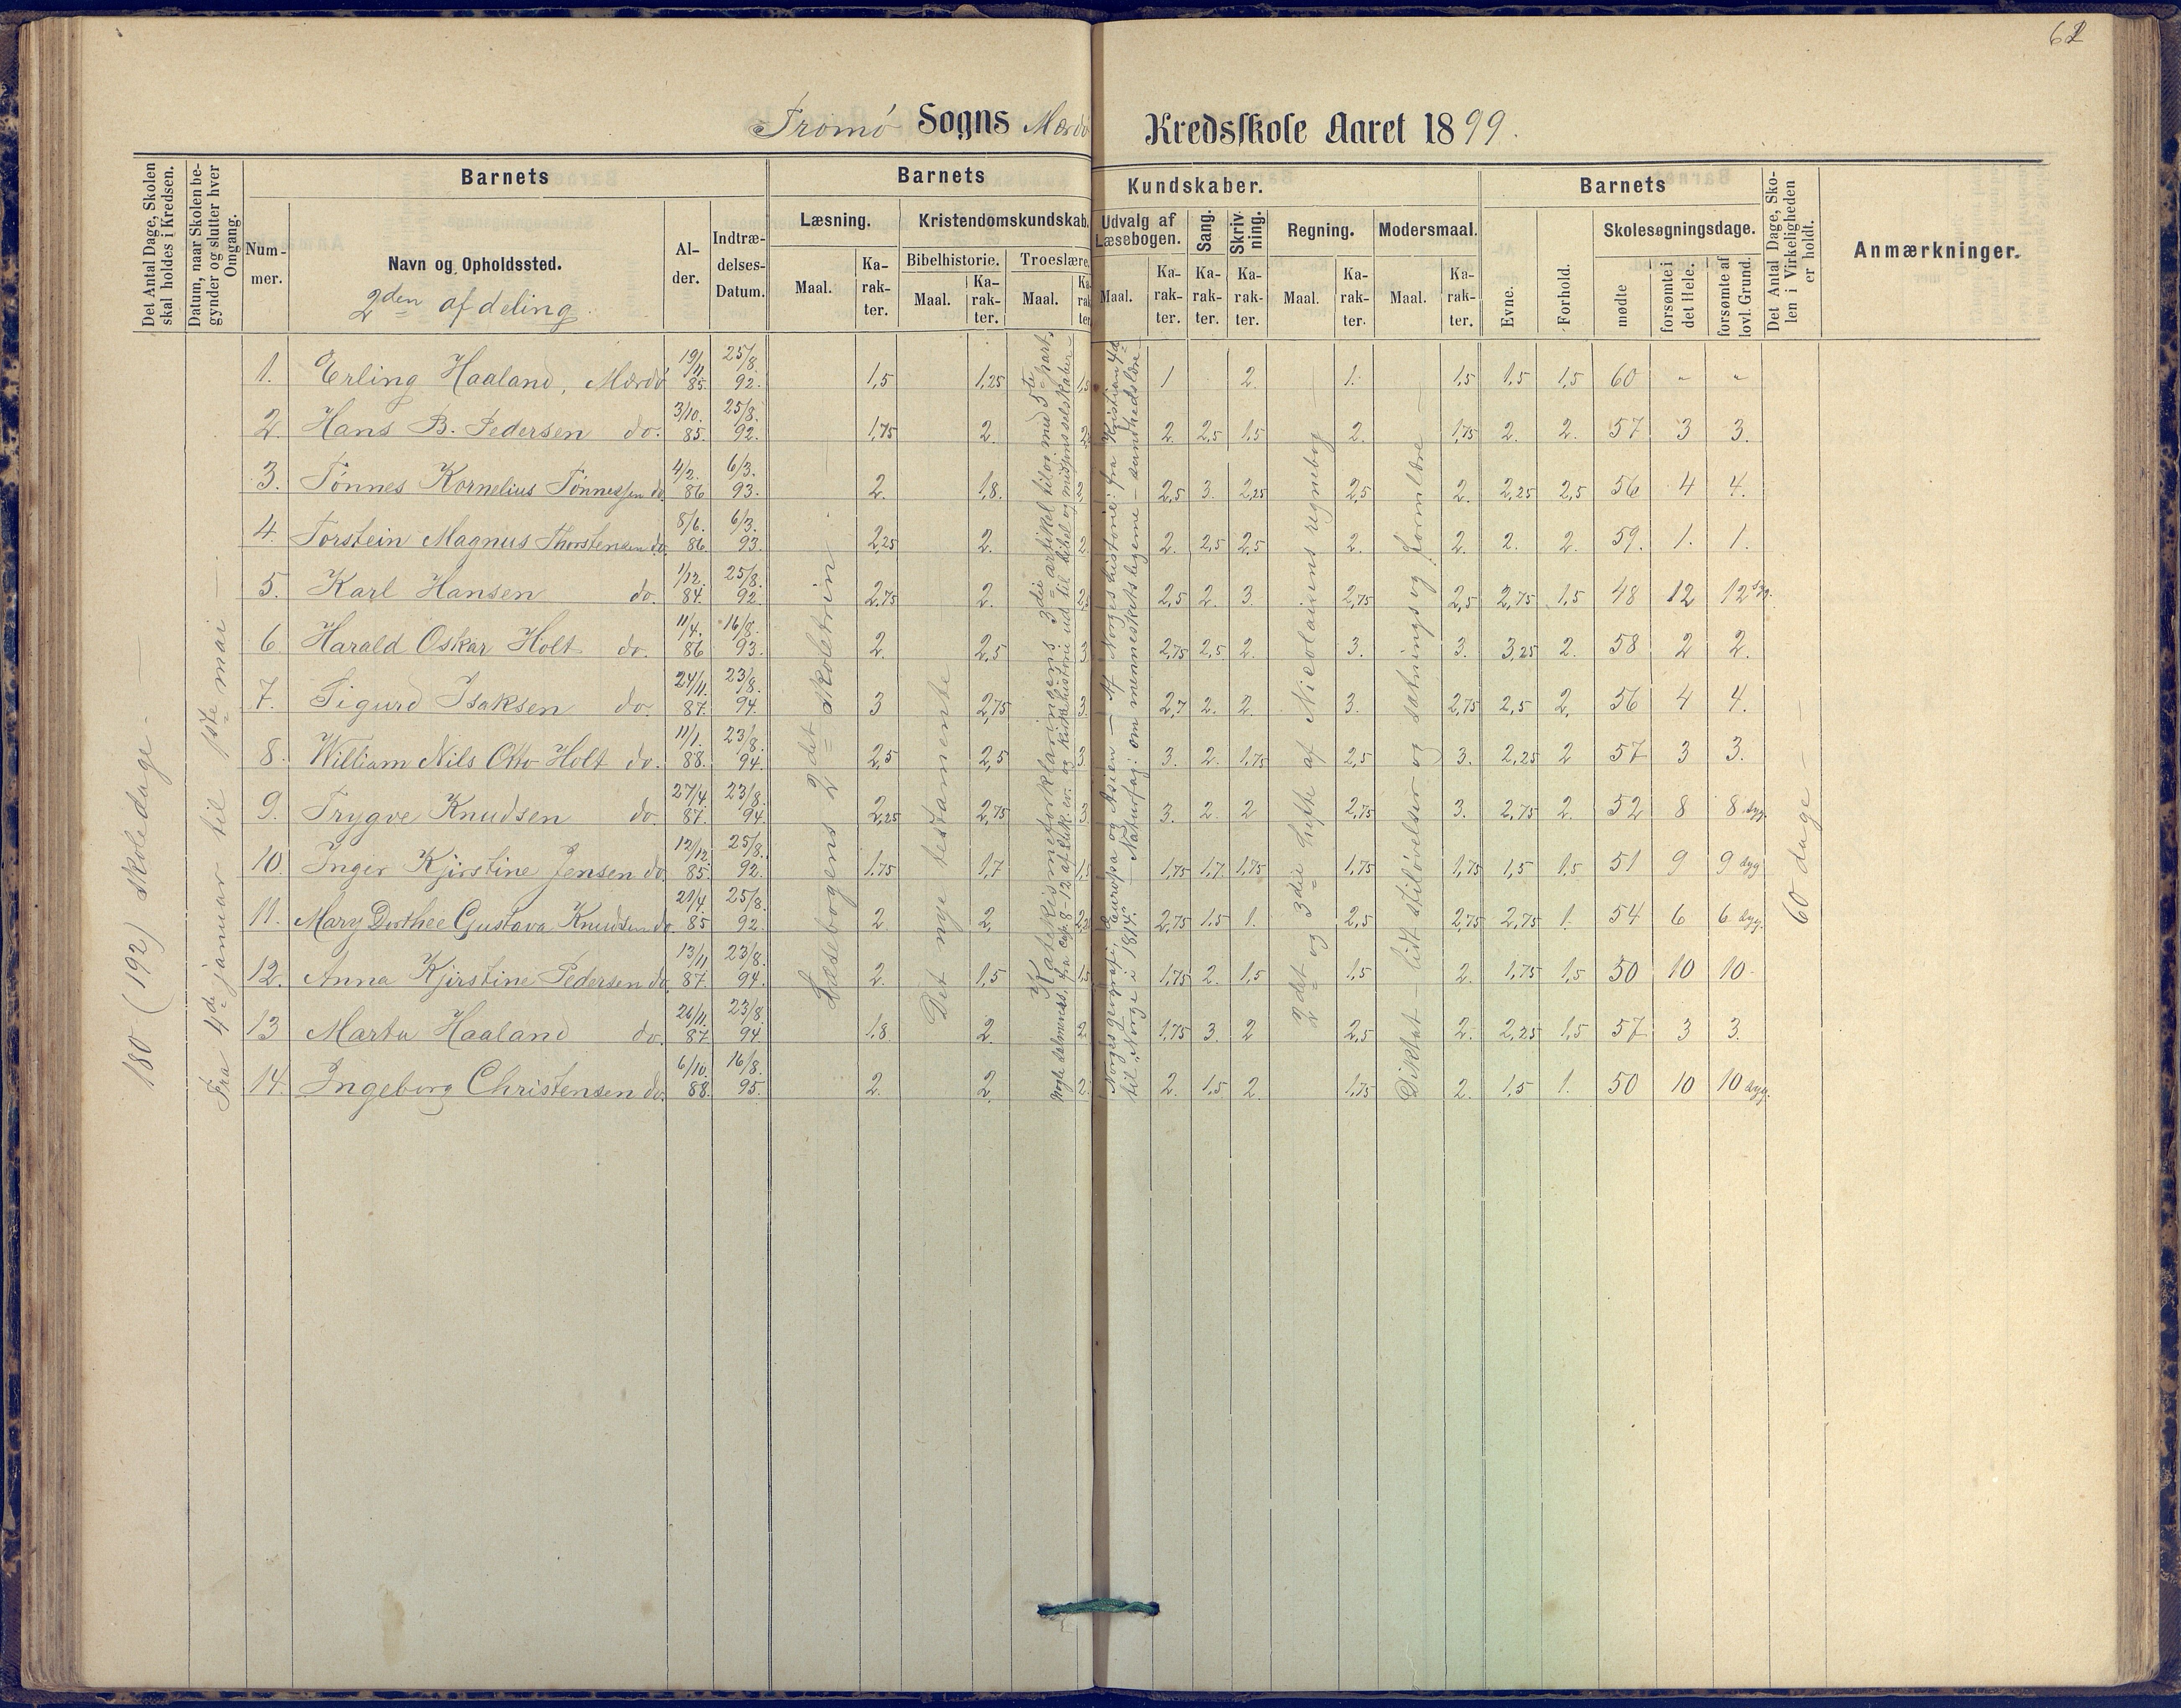 62
Tromø Sogns Mærdø Kredsskole Aaret 1899.
Det Antal Dage, Skolen skal holdes i Kredsen.
Datum, naar Skolen begynder og slutter hver Omgang.
Barnets
Barnets Kundskaber.
Barnets
Det Antal Dage, Skolen i Virkeligheden er holdt.
Anmærkninger.
Nummer.
Navn og Opholdssted.
2den afdeling
Alder.
Indtrædelses-Datum.
Læsning.
Kristendomskundskab.
Udvalg af Læsebogen.
Sang.
Skrivning.
Regning.
Modersmaal.
Evne.
Forhold.
Skolesøgningsdage.
Bibelhistorie.
Troeslære.
Maal. Karakter. Maal. Karakter. Maal. Karakter. Maal. Karakter. Karakter. Karakter. Maal. Karakter. Maal. Karakter.
mødte
forsømte i det Hele.
forsømte af lovl. Grund.
180 (192) skoledage.
Fra 4de januar til 1ste mai
Læsebogens 2det skoletrin
Det nye testamente
Katekismeforklaringens 3die artikel tilog med 5te part.
Norges geografi, Europa og Asien — Af Norges historie: fra Kristian 4de
til Norge i 1814. — Naturfag: om menneskets legeme — sundhedslære
2det og 3die hefte af Nicolaisens regnebog
Diktat — lidt stiløvelser og sætnings og formlære
60 dage
1. Erling Haaland, Mærdø 19/11 85. 25/8. 92. 1,5 1,25 1,5 1 2. 1. 1,5 1,5 1,5 60 " "
2. Hans B. Pedersen do. 3/10. 85. 25/8. 92. 1,75 2. 2. 2,5 1,5 2. 1,75 2. 2. 57 3 3.
3. Tønnes Kornelius Tønnessen do. 4/2. 86 6/3. 93. 2. 1,8. 2,5 3. 2,25 2,5 2. 2,25 2,5 56 4 4.
4. Torstein Magnus Thorstensen do. 8/6. 86. 6/3. 93. 2,25 2. 2. 2. 2,5 2,5 2. 2. 2. 2. 59. 1. 1.
5. Karl Hansen do. 1/12. 84. 25/8. 92. 2,75 2. 2,5 2. 3. 2,75 2,5 2,75 1,5 48 12 12 syg.
6. Harald Oskar Holt do. 11/4. 86 16/8. 93. 2. 2,5 3 2,75 2,5 2. 3. 3. 3,25 2. 58 2 2.
7. Sigurd Isaksen do. 24/11. 87. 23/8. 94. 3 2,75 3. 2,7 2. 2. 3. 2,75 2,5 2. 56 4 4.
8. William Nils Otto Holt do. 11/1. 88. 23/8. 94. 2,5 2,5 3 3. 2. 1,75 2,5 3. 2,25 2 57 3 3.
9. Trygve Knudsen do. 27/4. 87. 23/8. 94 2,25 2,75 3 3. 2. 2 2,75 3. 2,75 2. 52 8 8 syg.
10. Inger Kjirstine Jensen do. 12/12. 85. 25/8. 92. 1,75 1,7 1,5 1,75 1,7 1,75 1,75 1,75 1,5 1,5 51 9 9 syg
11. Mary Dorthee Gustava Knudsen do. 21/4. 85 25/8. 92. 2 2, 2,75 1,5 1. 2,5 2,75 2,75 1. 54 6 6 syg.
12. Anna Kjirstine Pedersen do. 13/11 87. 23/8. 94. 2. 1,5 1,5 1,75 2. 1,5 1,5 2. 1,75 1,5 50 10 10
13 Marta Haaland do. 26/11. 87. 23/8 94. 1,8. 2 2 1,75 3. 2 2,5 2. 2,25 1,5 57 3 3.
14. Ingeborg Christensen do. 6/10. 88. 16/8. 95. 2. 2. 2. 2. 1,5 2. 1,75 2. 1,5 1. 50 10 10 syg.